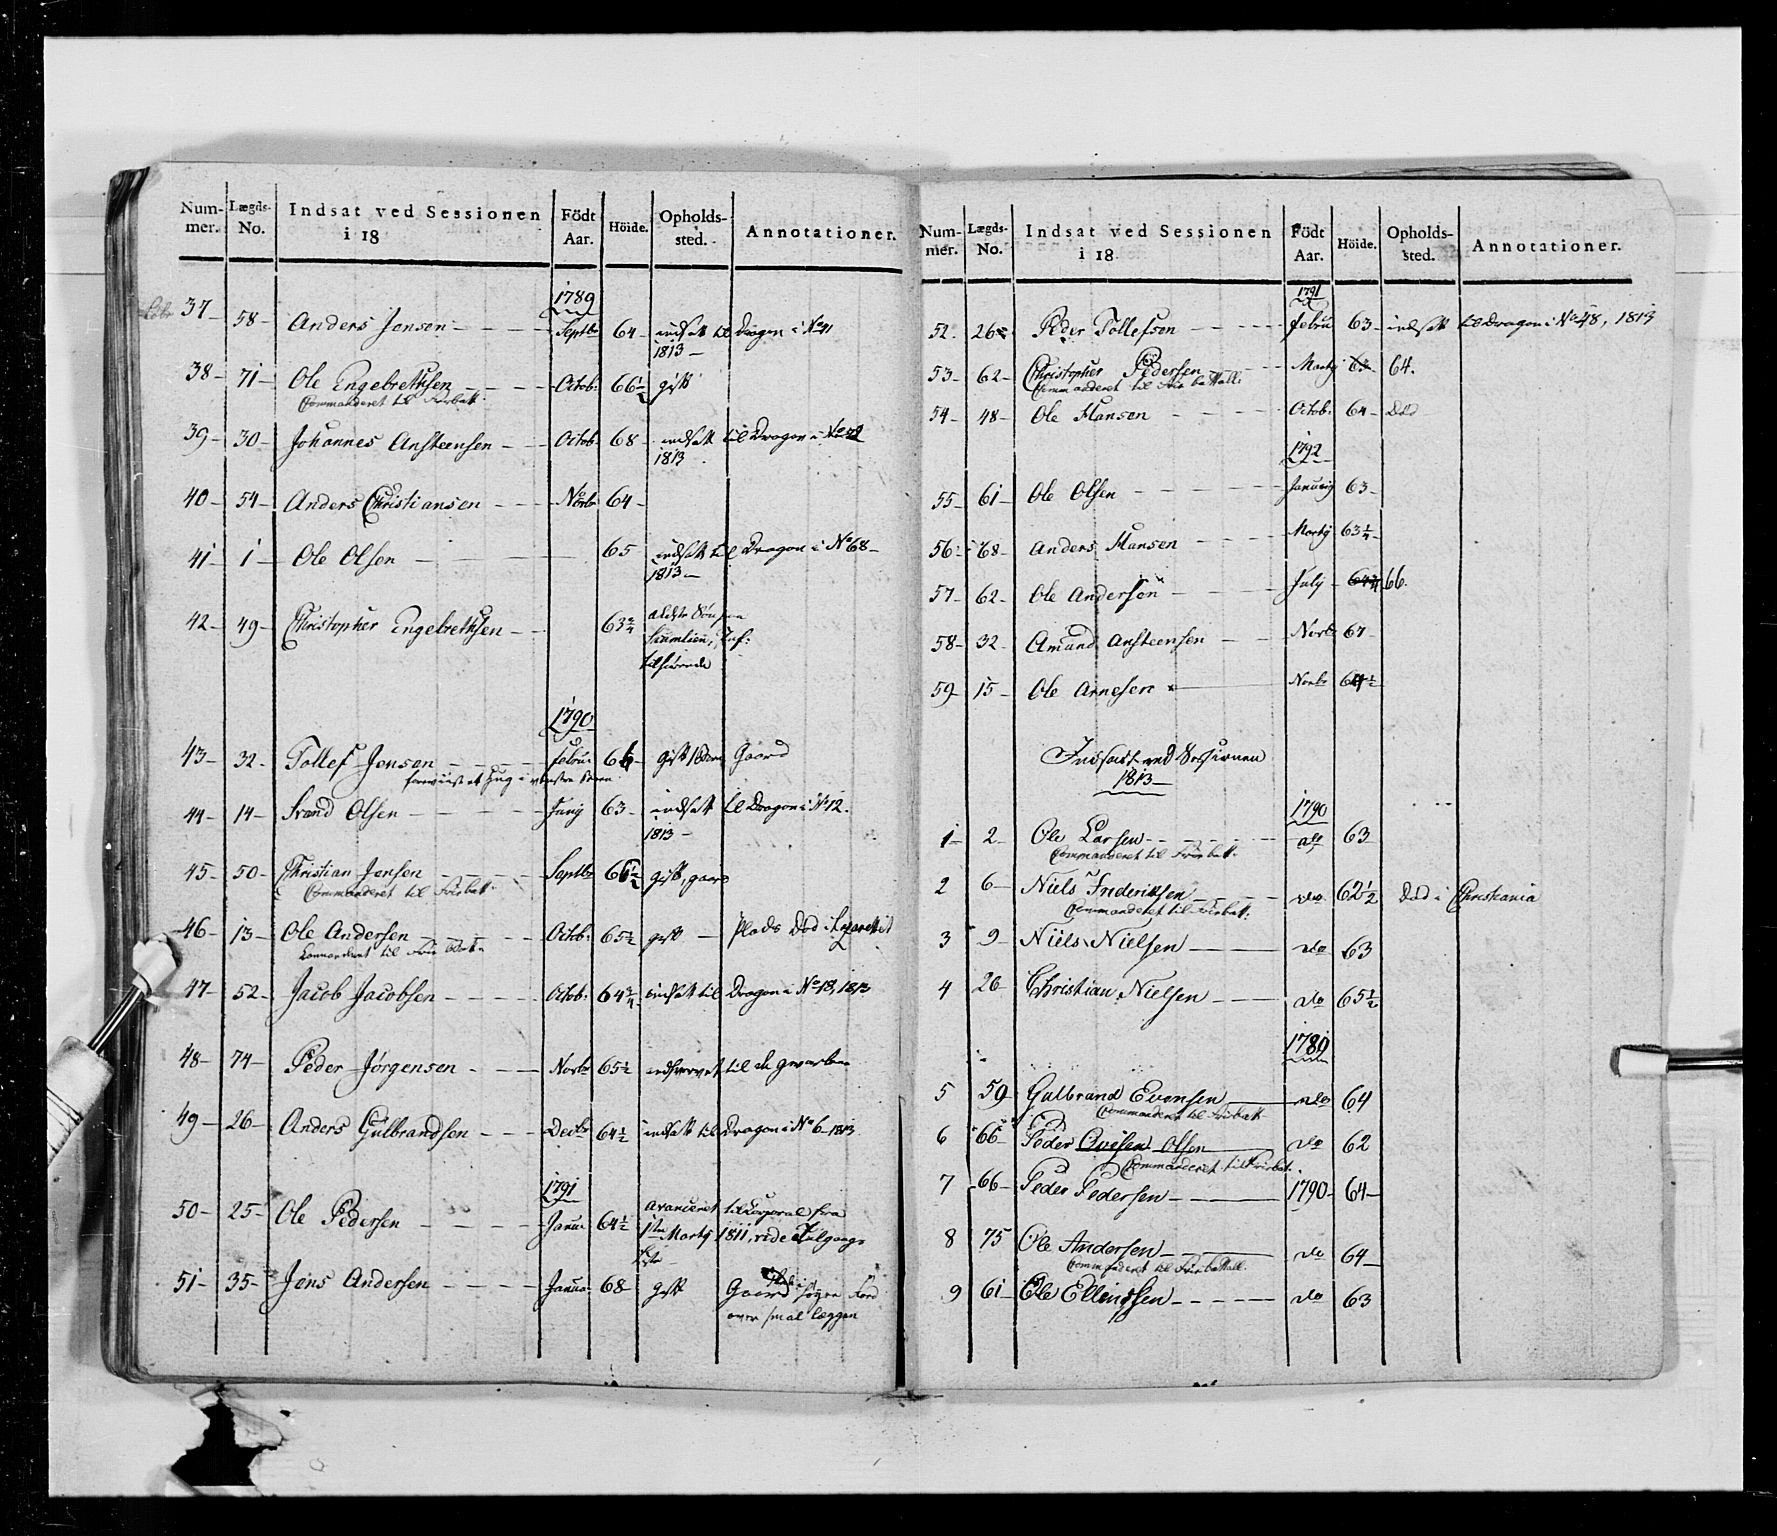 Num-mer. Lægds-No. Indsat ved Sessionen i 18 Födt Aar. Höide. Opholds-sted. Annotationer.
1789
37 – 58 – Anders Jensen – Septbr 64 – indsatt til Dragon i No 41
1813 –
38 – 71 – Ole Engebrethsen – Octob: 66½ gift
Commanderet til Friebatt:
39 – 30 – Johannes Ansteensen – Octob 68 – indsatt til Dragon i No
1813
40 – 54 – Anders Christiansen – Novbr 64 –
41 – 1 – Ole Olsen – 65 indsatt til Dragon i No 68 –
1813 –
42 – 49 – Christopher Engebrethsen – 63¾ ældste Søn
1790
43 – 32 – Tollef Jensen – Febru 66 – gift Gaard
44 – 14 – Svend Olsen – Juny 63 – indsatt til Dragon i No 12.
1813 –
45 – 50 – Christian Jensen – Septbr 66½ gift, gaard
Commanderet til Friebatt.
46 – 13 – Ole Andersen – Octob: 65½ gift – Plads Død i Lazarettet
Commanderet til Frie Batt.
47 – 52 – Jacob Jacobsen – Octob. 64¾ indsatt til Dragon i No 18, 1813
48 – 74 – Peder Jörgensen – Novbr 65½ indhvervet til de gevorbne
49 – 26 – Anders Gulbrandsen – Decbr 64½ indsatt til Dragon i No 6 – 1813
1791
50 – 25 – Ole Pedersen – Janu: 64½ avanceret til Corporal fra
1ste Martj 1811, vide Tilgangs
51 – 35 – Jens Andersen – Janua: 68 gift Gaard
over smal læggen
Num-mer. Lægds-No. Indsat ved Sessionen i 18 Födt Aar. Höide. Opholds-sted. Annotationer.
1791
52. 26 Peder Tollefsen – Febru 63 – indsatt til Dragon i No 48, 1813
53 – 62 – Christopher Pedersen – Martj 64.
Commanderet til Frie battall:
54 – 48 – Ole Hansen – Octob. 64 – Død
1792
55 – 61 – Ole Olsen – Januarij 63 –
56 – 68 – Anders Hansen – Martj 63¼
57 – 62 – Ole Andersen – July 66.
58 – 32 – Amund Ansteensen – Novbr 67 –
59 – 15 – Ole Arnesen – Novbr 64½
Indsatt ved Sessionen
1813 –
1790
1 – 2 – Ole Larsen – do 63
Commanderet til Friebatt.
2 6 – Niels Frederiksen – do 62½ Død i Christiania
Commanderet til Friebatt.
3 9 – Niels Nielsen – do 63
4 26 – Christian Nielsen – do 65½
1789
5 59 Gulbrand Evensen – do 64
Commanderet til Friebatt
6 66 Peder Ovesen Olsen do 62
Commanderet til Friebat.
7 66 – Peder Pedersen – 1790 – 64 –
8 75 Ole Andersen – do 64 –
Commanderet til Friebattall.
9 61 – Ole Ellingsen – do 63